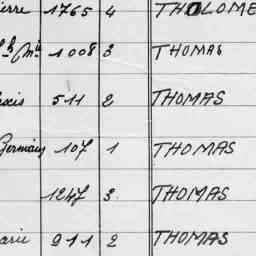 ierre 1765 4 THOLOME
1008 3 THOMAS
exis 511 2 THOMAS
Germain 107 1 THOMAS
1247 3 THOMAS
arie 911 2 THOMAS